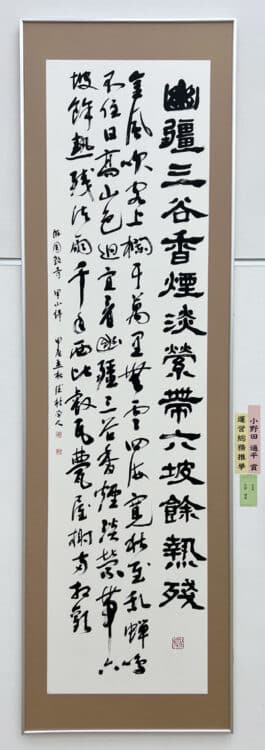 幽疆三谷香煙淡縈帶六坡餘熱殘
金風吹客上欄干萬里無雲四海寬秋至亂蟬鳴
不住日高山色迥宜看幽疆三谷香煙淡縈帶六
坡餘熱殘法雨千年西比叡瓦甍屋樹
甲辰立秋
小野田通平賞
運営総務推挙